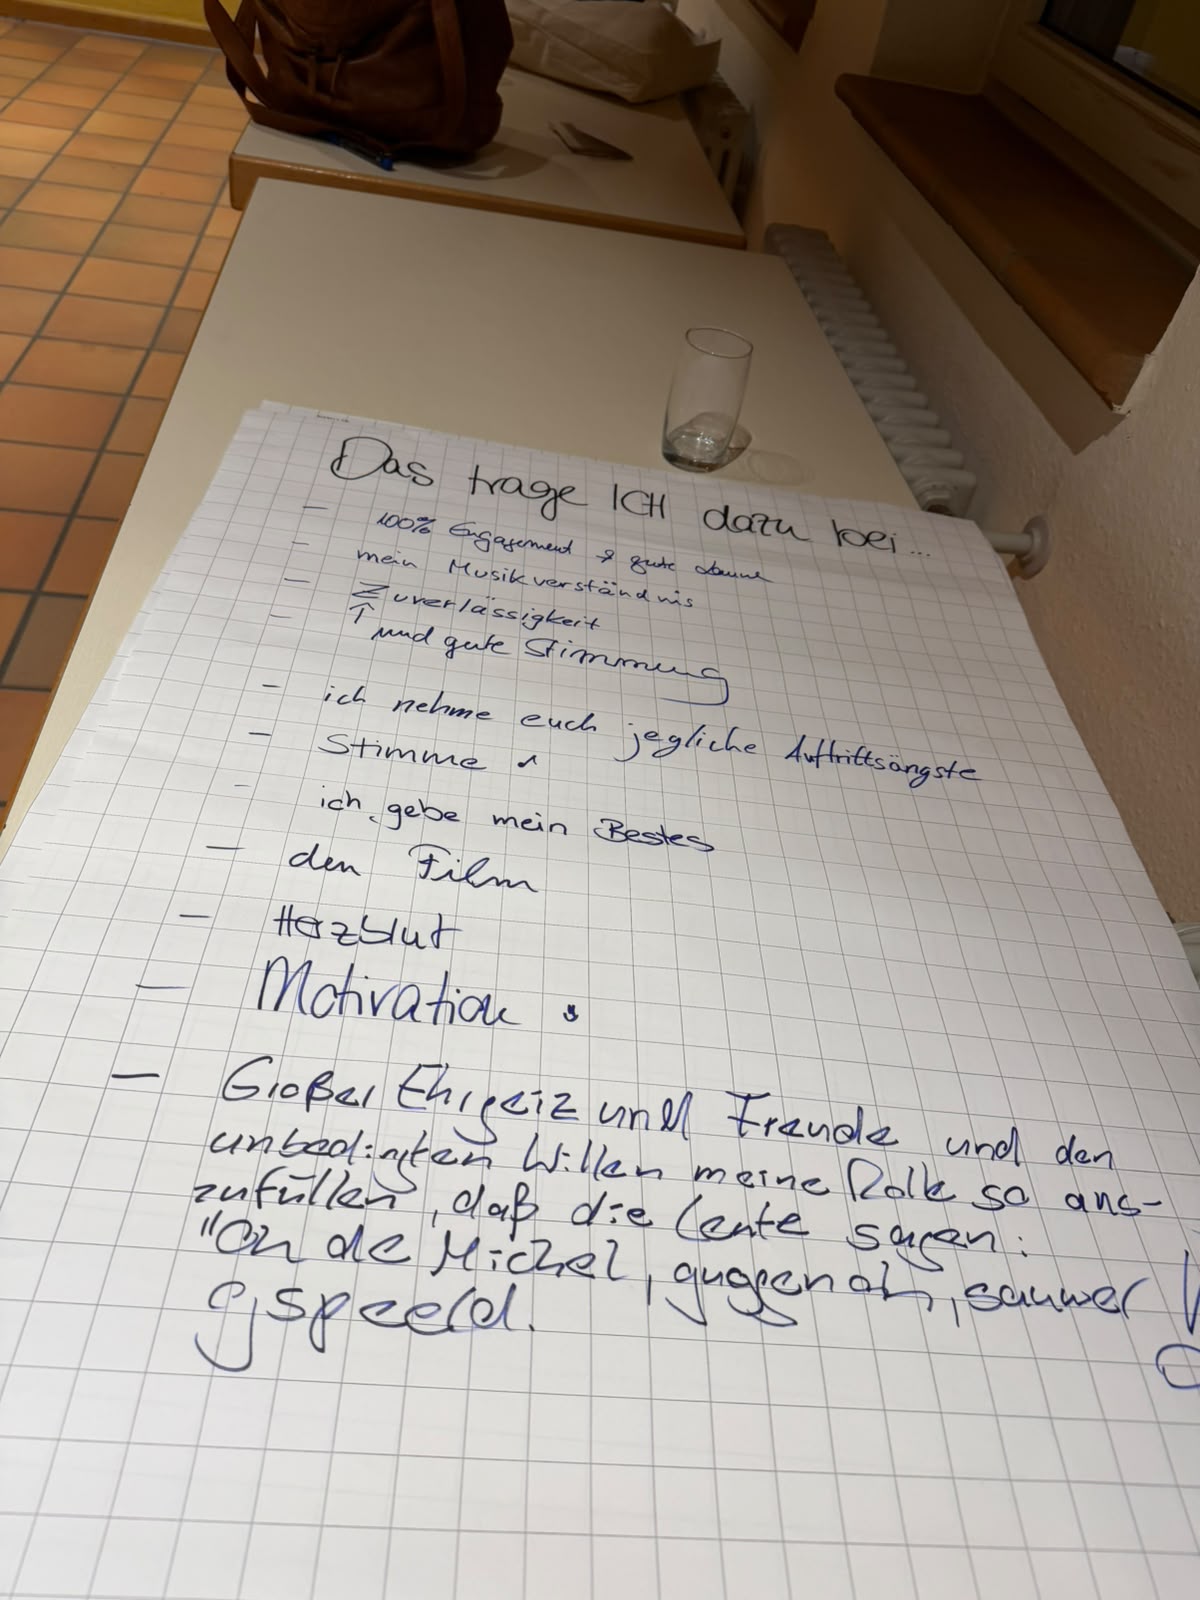 Das trage ICH dazu bei...
- 100% Engagement & gute Laune
- mein Musikverständnis
- Zuverlässigkeit
- ↑ und gute Stimmung
- ich nehme euch jegliche Auftrittsängste
- Stimme
- ich gebe mein Bestes
- den Film
- Herzblut
- Motivation
- Großer Ehrgeiz und Freude und den
unbedingten Willen meine Rolle so aus-
zufüllen, daß die Leute sagen:
"Oh de Michel, guggen oh, sauwer
gspeeld.